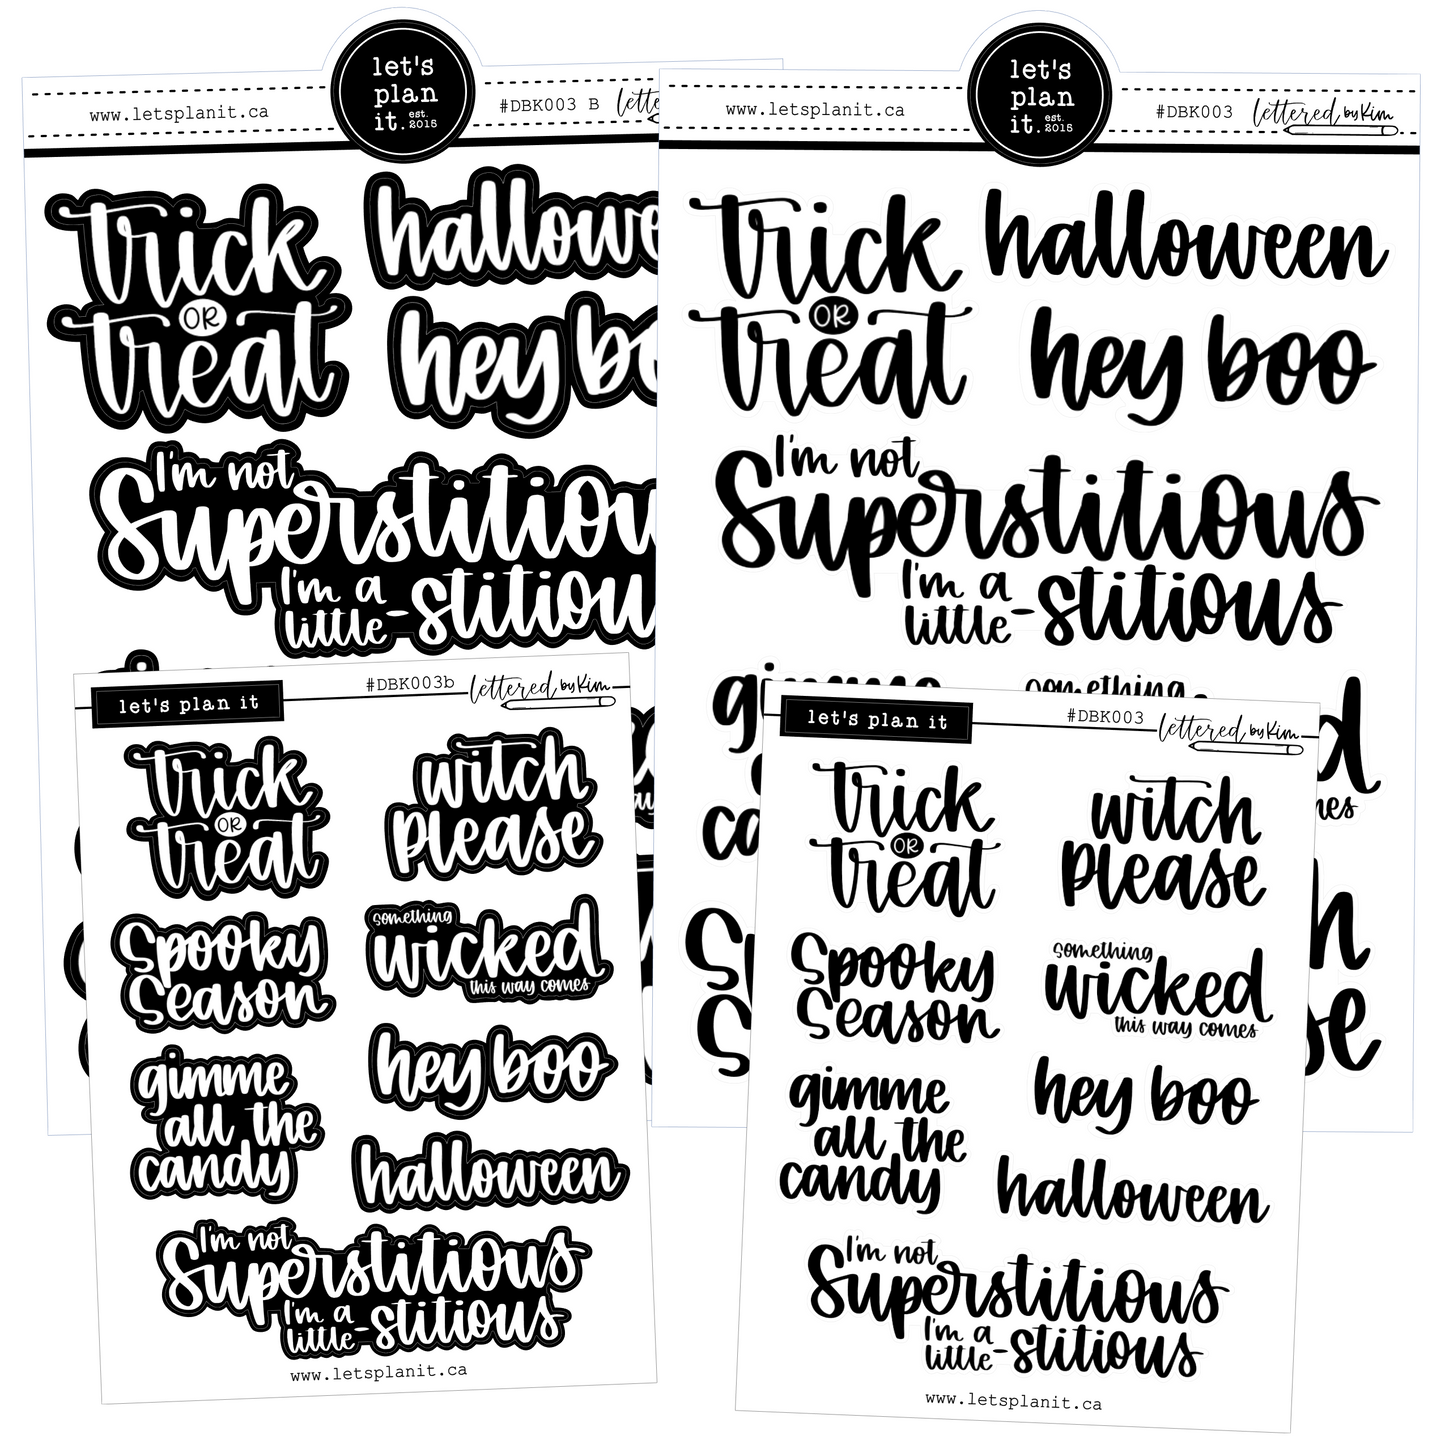 let's
plan
it. est. 2015
www.letsplanit.ca
#DBK003 B
trick
OR
treat
hey
I'm not
Superstitiou
I'm a
little-stitiou
let's
plan
it. est. 2015
www.letsplanit.ca
#DBK003
lettered by Kim
trick
OR
treat
halloween
hey boo
I'm not
Superstitious
I'm a
little-stitious
gimme
something
let's plan it
#DBK003b
lettered by Kim
trick
OR
treat
witch
please
Spooky
Season
something
wicked
this way comes
gimme
all the
candy
hey boo
halloween
I'm not
Superstitious
I'm a
little-stitious
www.letsplanit.ca
let's plan it
#DBK003
lettered by Kim
trick
OR
treat
witch
please
Spooky
Season
something
wicked
this way comes
gimme
all the
candy
hey boo
halloween
I'm not
Superstitious
I'm a
little-stitious
www.letsplanit.ca